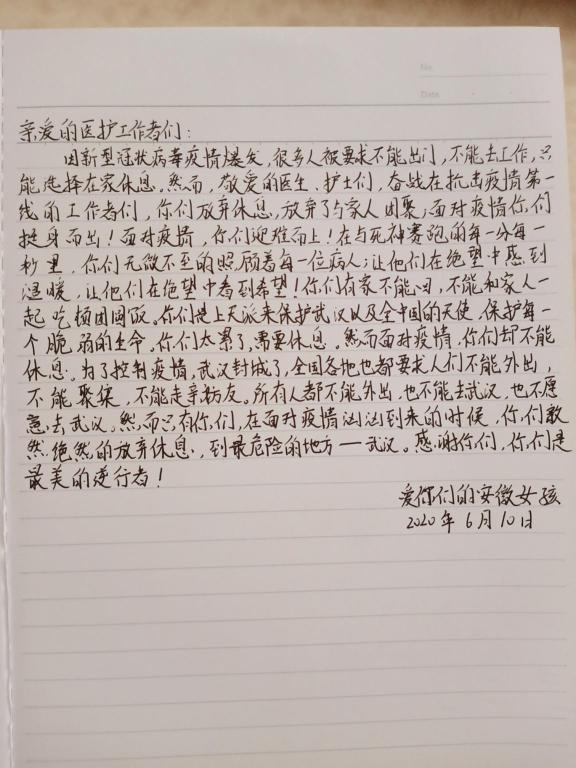 No.
Date
亲爱的医护工作者们：
因新型冠状病毒疫情爆发，很多人被要求不能出门，不能去工作，只
能选择在家休息。然而，敬爱的医生、护士们，奋战在抗击疫情第一
线的工作者们，你们放弃休息，放弃了与家人团聚；面对疫情你们
挺身而出！面对疫情，你们迎难而上！在与死神赛跑的每一分每一
秒里，你们无微不至的照顾着每一位病人；让他们在绝望中感到
温暖，让他们在绝望中看到希望！你们有家不能回，不能和家人一
起吃顿团圆饭。你们是上天派来保护武汉以及全中国的天使，保护每一
个脆弱的生命。你们太累了，需要休息。然而面对疫情，你们却不能
休息。为了控制疫情，武汉封城了，全国各地也都要求人们不能外出，
不能聚集，不能走亲访友。所有人都不能外出，也不能去武汉，也不愿
意去武汉。然而只有你们，在面对疫情汹汹到来的时候，你们毅
然绝然的放弃休息，到最危险的地方——武汉。感谢你们，你们是
最美的逆行者！
爱你们的安徽女孩
2020年6月10日